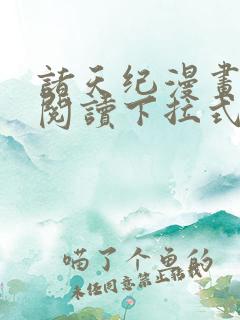 諸天纪漫畫
閱讀下拉式
喵了个鱼的
未经同意禁止转载